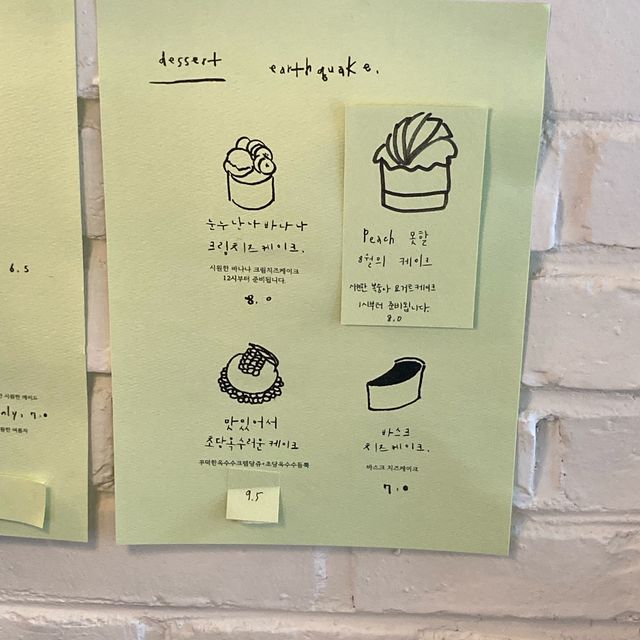 6.5
nly, 7.0
dessert
earthquake.
눈누난나 바나나
크림치즈케이크.
시원한 바나나 크림치즈케이크
12시부터 준비됩니다.
8.0
Peach 못할
8월의 케이크
시원한 복숭아 요거트케이크
1시부터 준비됩니다.
8.0
맛있어서
초당옥수러운 케이크
꾸덕한옥수수크렘당쥬+초당옥수수듬뿍
9.5
바스크
치즈케이크.
바스크 치즈케이크
7.0